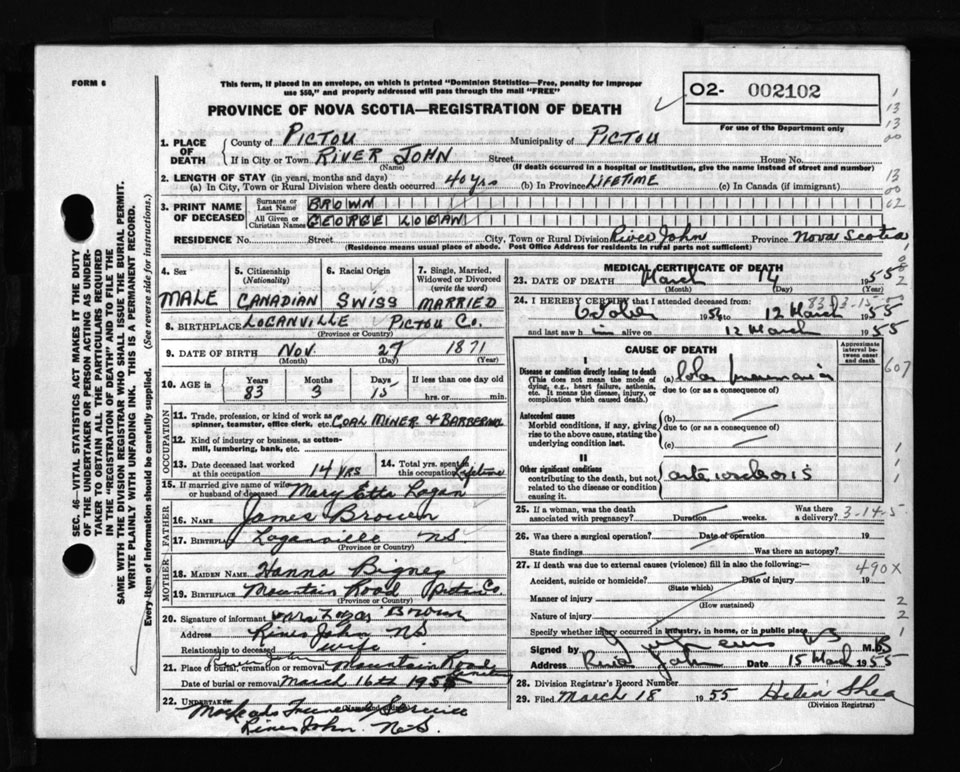 FORM 6
This form, if placed in an envelope, on which is printed "Dominion Statistics—Free, penalty for improper
use $50," and properly addressed will pass through the mail "FREE"
PROVINCE OF NOVA SCOTIA—REGISTRATION OF DEATH
O2- 002102
For use of the Department only
1. PLACE OF DEATH
County of PICTOU Municipality of PICTOU
If in City or Town RIVER JOHN Street House No.
(Name) (If death occurred in a hospital or institution, give the name instead of street and number)
2. LENGTH OF STAY (in years, months and days)
(a) In City, Town or Rural Division where death occurred 40 yrs (b) In Province LIFETIME (c) In Canada (if immigrant)
3. PRINT NAME OF DECEASED
Surname or Last Name BROWN
All Given or Christian Names GEORGE LOGAN
RESIDENCE No. Street City, Town or Rural Division River John Province Nova Scotia
(Residence means usual place of abode. Post Office Address for residents in rural parts not sufficient)
4. Sex
MALE
5. Citizenship (Nationality)
CANADIAN
6. Racial Origin
SWISS
7. Single, Married, Widowed or Divorced (write the word)
MARRIED
8. BIRTHPLACE LOGANVILLE PICTOU CO.
(Province or Country)
9. DATE OF BIRTH Nov. 27 1871
(Month) (Day) (Year)
10. AGE IN
Years Months Days If less than one day old
83 3 15 hrs. or min.
OCCUPATION
11. Trade, profession, or kind of work as spinner, teamster, office clerk, etc. COAL MINER & BARBERING
12. Kind of industry or business, as cotton-mill, lumbering, bank, etc.
13. Date deceased last worked at this occupation 14 YRS
14. Total yrs. spent in this occupation Lifetime
15. If married give name of wife or husband of deceased Mary Etta Logan
FATHER
16. NAME James Brown
17. Birthplace Loganville N.S.
(Province or Country)
MOTHER
18. MAIDEN NAME Hanna Bigney
19. BIRTHPLACE Mountain Road Pictou Co.
(Province or Country)
20. Signature of informant Mrs Logan Brown
Address River John NS
Relationship to deceased wife
21. Place of burial, cremation or removal River John Mountain Road Cemetery
Date of burial or removal March 16th 1955
22. UNDERTAKER Funeral Service
River John. N.S.
MEDICAL CERTIFICATE OF DEATH
23. DATE OF DEATH March 14 1955
(Month) (Day) (Year)
24. I HEREBY CERTIFY that I attended deceased from:
October 1954 to 12 March 1955
83 3-15
and last saw h im alive on 12 March 1955
CAUSE OF DEATH
Approximate interval between onset and death
I
Disease or condition directly leading to death
(This does not mean the mode of dying, e.g., heart failure, asthenia, etc. It means the disease, injury, or complication which caused death.)
(a) lobar pneumonia
due to (or as a consequence)
Antecedent causes
Morbid conditions, if any, giving rise to the above cause, stating the underlying condition last.
(b)
due to (or as a consequence of)
(c)
II
Other significant conditions contributing to the death, but not related to the disease or condition causing it.
arteriosclerosis
607
25. If a woman, was the death associated with pregnancy? Duration weeks. Was there a delivery?
3-14-5
26. Was there a surgical operation? Date of operation 19
State findings Was there an autopsy?
27. If death was due to external causes (violence) fill in also the following:—
490X
Accident, suicide or homicide? Date of injury 19
(State which)
Manner of injury
(How sustained)
Nature of injury
Specify whether injury occurred in industry, in home, or in public place
Signed by M.D.
Address River John Date 15 March 1955
28. Division Registrar's Record Number
29. Filed March 18 1955 Helen Shea
(Division Registrar)
SEC. 46—VITAL STATISTICS ACT MAKES IT THE DUTY
OF THE UNDERTAKER OR PERSON ACTING AS UNDER-
TAKER TO OBTAIN ALL THE PARTICULARS REQUIRED
IN THE "REGISTRATION OF DEATH" AND TO FILE THE
SAME WITH THE DIVISION REGISTRAR WHO SHALL ISSUE THE BURIAL PERMIT.
WRITE PLAINLY WITH UNFADING INK. THIS IS A PERMANENT RECORD.
Every item of information should be carefully supplied. (See reverse side for instructions.)